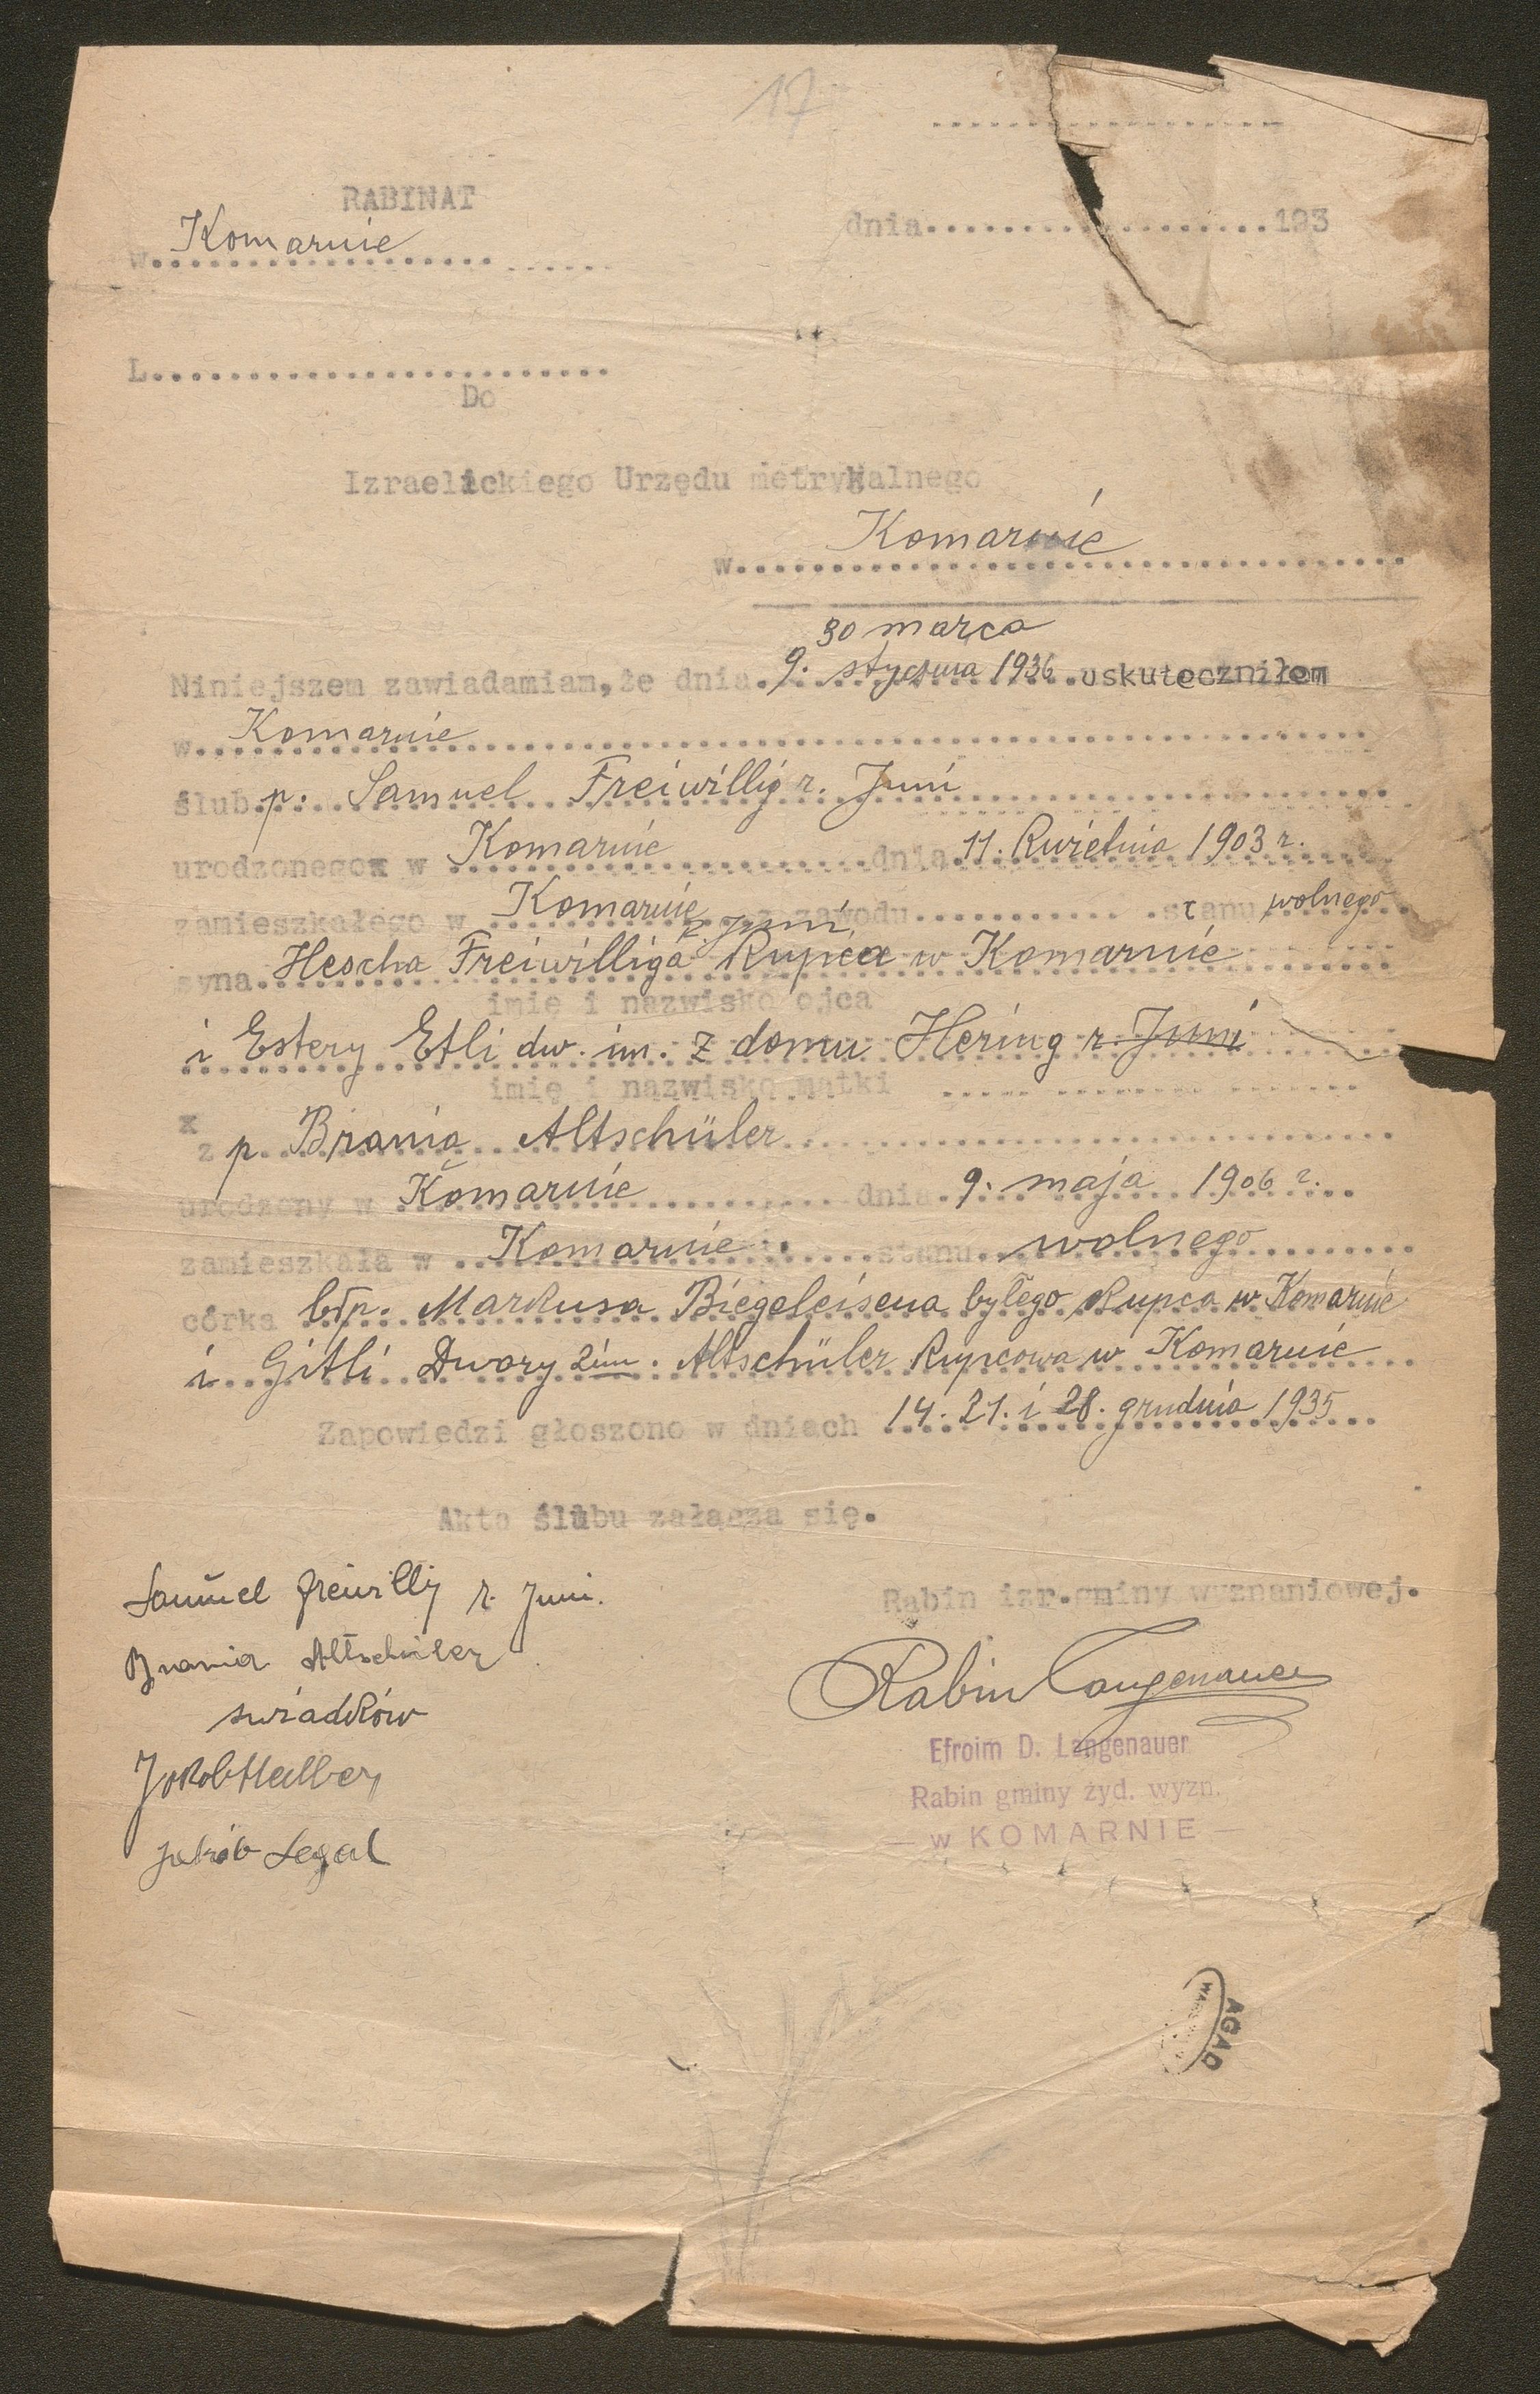 17
RABINAT
dnia....................193
w Komarnie
L.........................
Do
Izraelickiego Urzędu metrykalnego
w Komarnie
30 marca
Niniejszem zawiadamiam, że dnia 9. stycznia 1936 uskuteczniłem
w Komarnie
ślub p. Samuel Freiwillig r. Juni
urodzonegox w Komarnie dnia 11. kwietnia 1903 r.
zamieszkałego w Komarnie z zawodu............ stanu wolnego
r. Juni
syna Hescha Freiwilliga kupca w Komarnie
imię i nazwisko ojca
i Estery Etli dw. im. z domu Hering r. Juni
imię i nazwisko matki
x
z p. Brania Altschüler
urodzony w Komarnie dnia 9. maja 1906 r.
zamieszkała w Komarnie stanu wolnego
córka błp. Markusa Biegeleisena byłego kupca w Komarnie
i Gitli Dwory 2im. Altschüler kupcowa w Komarnie
Zapowiedzi głoszono w dniach 14. 21. i 28. grudnia 1935
Akto ślubu załącza się.
Samuel Freiwillig r. Juni.
Rabin izr. gminy wyznaniowej.
Brania Altschüler
Rabin Langenauer
świadków
Efroim D. Langenauer
Jakob
Rabin gminy żyd. wyzn.
— w KOMARNIE —
Jakób Segal
AGAD